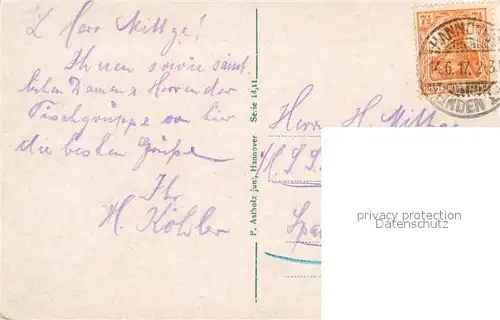 L Herr Mittge!
Ihnen sowie sämt
lichen Damen & Herren der
Tischgruppe von hier
die besten Grüße
Ihr
H. Köhler
F. Astholz jun., Hannover Serie 14,11
7½ 7½
HANNOVER
14.6.17. 2-3
LINDEN
Herrn H. Mittge
privacy protection
Datenschutz